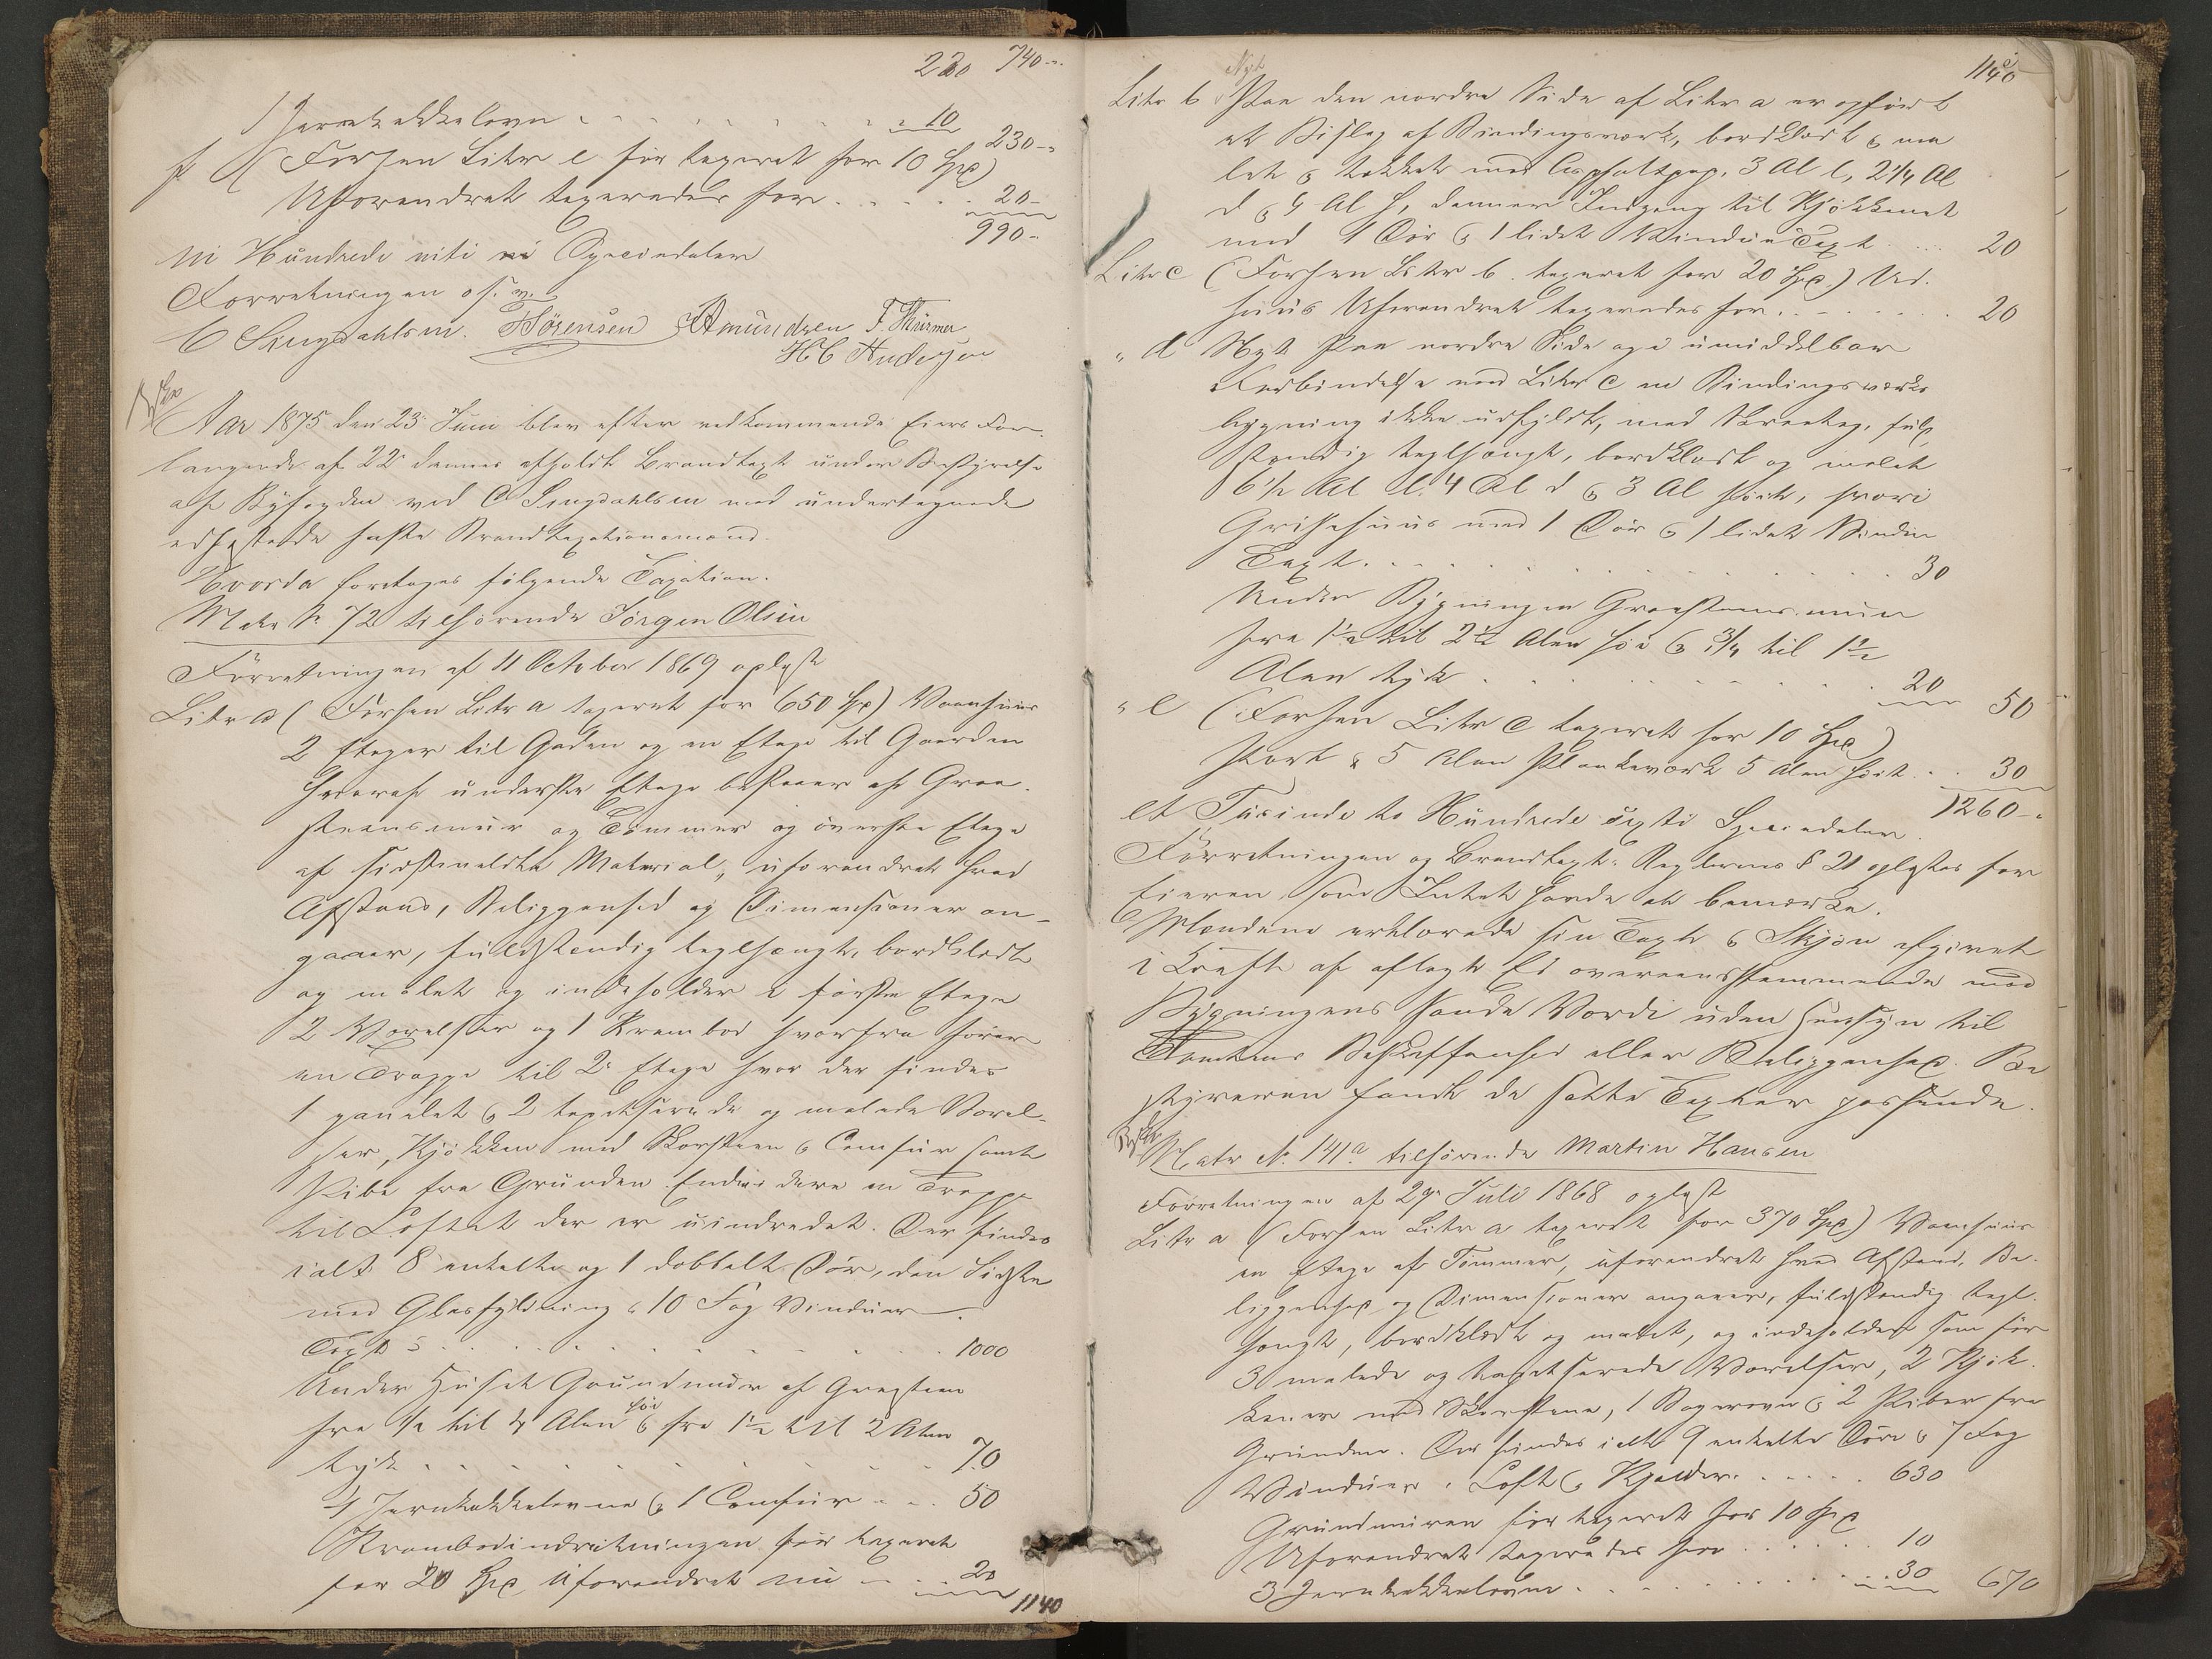 220 740 -"-
1 Jernkakkelovn . . . . . . . . " 10
230 -"
f ( Forhen Litr e før taxeret for 10 Spd)
Uforandret taxeredes for . . . . . 20 -
990 -
ni Hundrede niti Speciedaler
Forretningen o. s. v.
C Lingdahlsen. Sørensen Amundsen F. Thürmer
H C Andersen
Aar 1875 den 23 Juni blev efter vedkommende Eiers For-
langende af 22 dennes afholdt Brandtaxt under Bestyrelse
af Byfogden ved C Lingdahlsen med undertegnede
edfæstede faste Brandtaxationsmænd.
Hvorda foretoges følgende Taxation.
Matr № 72 tilhørende Jørgen Olsen
Forretningen af 11 October 1869 oplæst
Litr a ( Forhen Litr a taxeret for 650 Spd) Vaanhuus
2 Etager til Gaden og en Etage til Gaarden
hvoraf underste Etage bestaaer af Graa-
steensmuur og Tømmer og øverste Etage
af sidstmeldte Material, uforandret hvad
Afstand, Beliggenhed og Dimensioner an-
gaaer, fuldstændig teglhængt, bordklædt
og malet og indeholder i første Etage
2 Værelser og 1 Krambod hvorfra fører
en Trappe til 2 Etage hvor der findes
1 panelet & 2 tapetserede og malede Værel-
ser, Kjøkken med Skorsteen & Comfur samt
Pibe fra Grunden. Endvidere en Trappe
til Loftet der er uindredet. Der findes
ialt 8 enkelte og 1 dobbelt Dør, den sidste
med Glasfyldning & 10 Fag Vinduer
Taxt . . . . . . . . . . . . 1000
Under Huset Grundmuur af Graasteen
fra ½ til 4 Alen høi & fra 1½ til 2 Alen
tyk . . . . . . . . . . 70
4 Jernkakkelovne & 1 Comfur . . . 50
Krambodindretningen før taxeret
for 20 Spd, Uforandret nu . . . 20
1140
1140
Nyt
Litr b Paa den nordre Side af Litr a er opført
et Bislag af Bindingsværk, bordklædt & ma
let & tækket med Asphaltpap. 3 Al l, 2¼ Al
d & 4 Al h, danner Indgang til Kjøkkenet
med 1 Dør & 1 lidet Vindue Taxt . . . . 20
Litr c ( Forhen Litr b. taxeret for 20 Spd.) Ud-
huus Uforandret taxeredes for . . . . . . 20
" d Nyt Paa nordre Side og i umiddelbar
Forbindelse med Litr c en Bindingsværks
bygning ikke udfyldt, med Skraatag, fuld
stændig teglhængt, bordklædt og malet
6½ Al l. 4 Al d & 3 Al høit, hvori
Grisehuus med 1 Dør & 1 lidet Vindue
Taxt . . . . . . . . . . . . 30
Under Bygningen Graasteensmuur
fra 1½ til 2½ Alen høi & ¾ til 1½
Alen tyk . . . . . . . . . . 20 50
" e ( Forhen Litr c taxeret for 10 Spd)
Port & 5 Alen Plankeværk 5 Alen høit . . 30
1260 -"
et Tusinde to Hundrede sexti Speciedaler
Forretningen og Brandtaxt-Reglernes § 21 oplæstes for
Eieren som Intet havde at bemærke.
Mændene erklærede sin Taxt & Skjøn afgivet
i Kraft af aflagt Ed overeensstemmende med
Bygningens sande Værdi uden Hensyn til
Tomtens Beskaffenhed eller Beliggenhed. Be
styreren fandt de satte Taxter passende.
Matr № 141a tilhørende Martin Hansen
Forretningen af 29 Juli 1868 oplæst
Litr a ( Forhen Litr a taxeret for 370 Spd.) Vaanhuus
en Etage af Tømmer, uforandret hvad Afstand, Be-
liggenhed og Dimensioner angaaer, fuldstændig tegl-
hængt, bordklædt og malet, og indeholder som før
3 malede og tapetserede Værelser, 2 Kjøk-
kener med Skorstene, 1 Bagerovn & 2 Piber fra
Grunden. Der findes ialt 9 enkelte Døre & 7 Fag
Vinduer, Loft & Kjælder. . . . . . 630
Grundmuren før taxeret for 10 Spd
Uforandret taxeredes for . . . . . . 10
3 Jernkakkelovne . . . . . . . . . 30 670